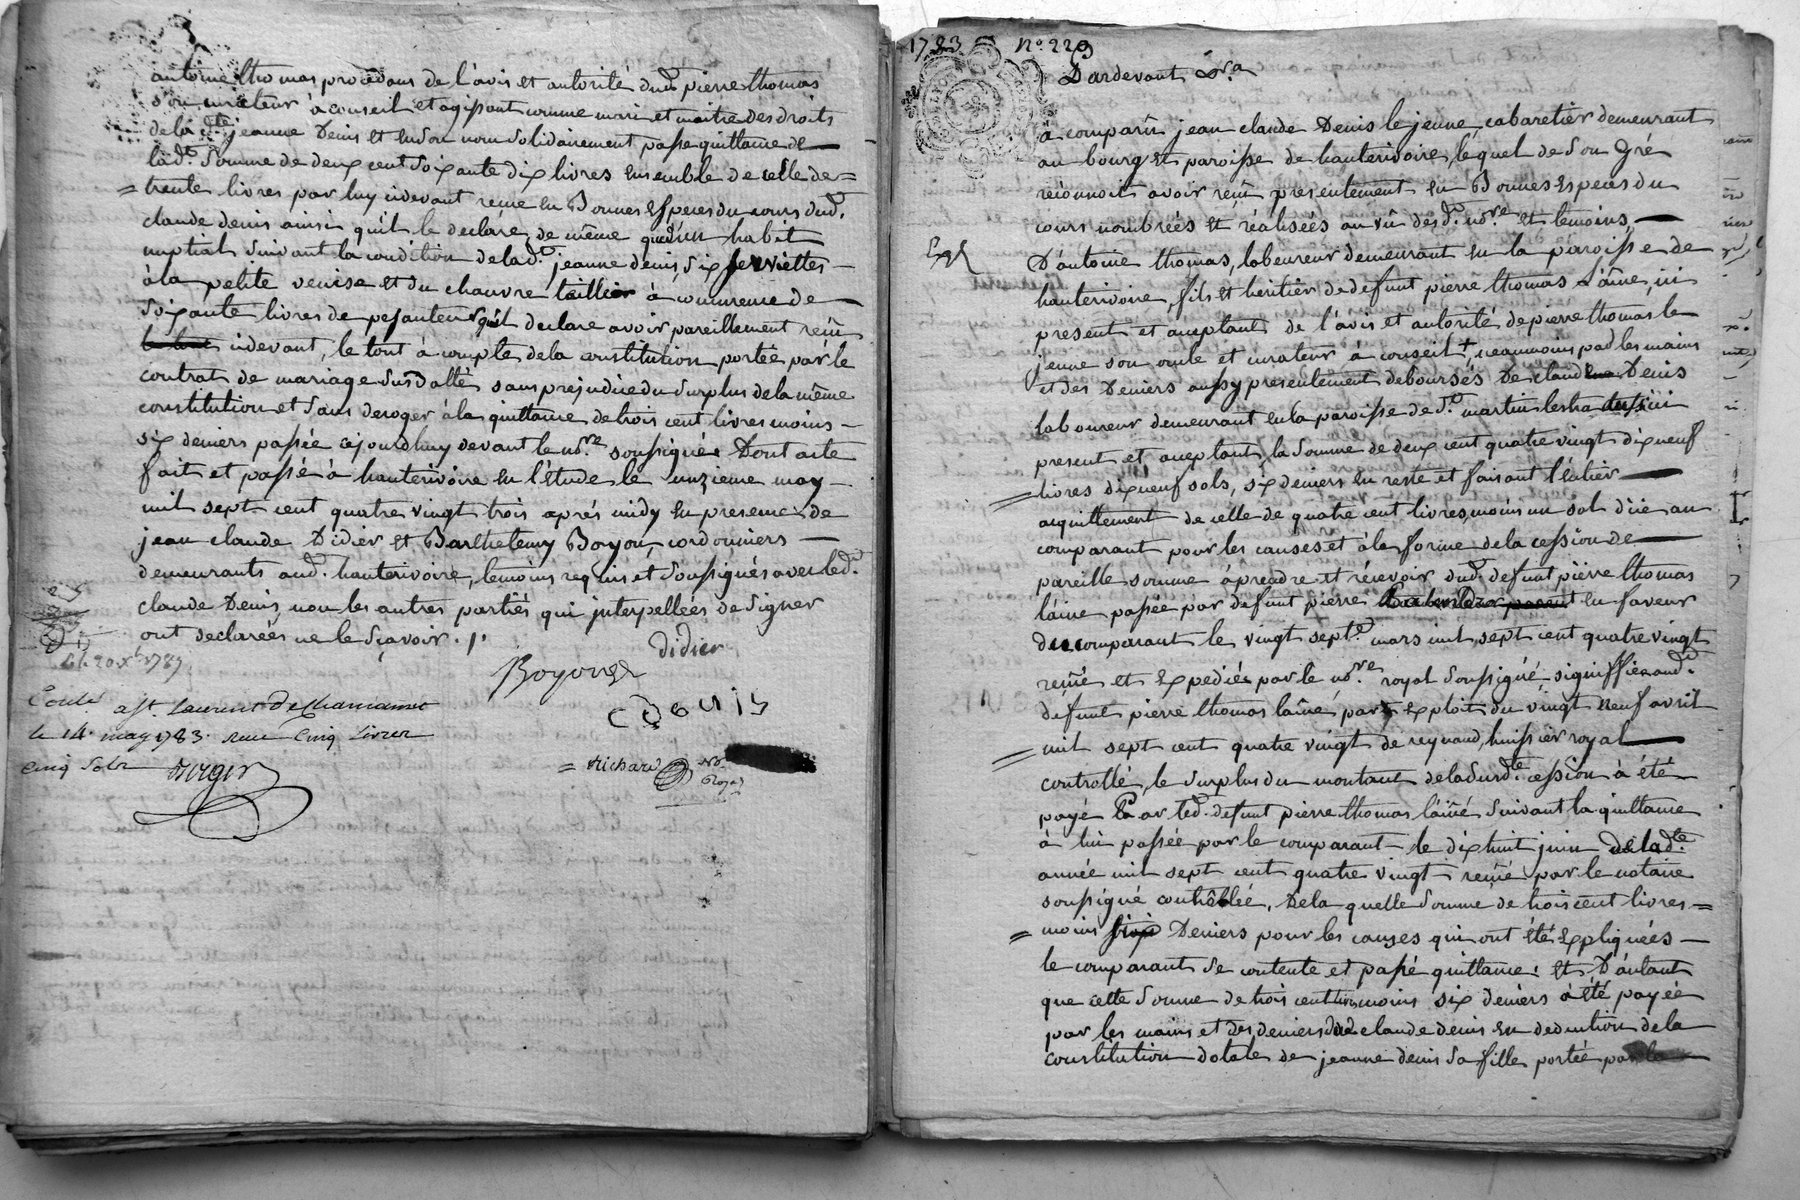 antoine thomas procedans de l'avis et autorité dud. pierre thomas
son curateur à conseil et agissant comme mari et maitre des droits
de la dte jeanne Denis et en son nom solidairement passe quittance de
lad. somme de deux cent soixante dix livres ensemble de celle de
trente livres par luy cidevant reçue en Bonnes Especes du cours dud.
claude denis ainsi quil le declare, de même que d'un habet
nuptial suivant la condition de lad. jeanne denis, six serviettes
à la petite venise et du chanvre tillier à commune de
soixante livres de pesanteur qu'il declare avoir pareillement reçu
cidevant, le tout à compte de la constitution portée par le
contrat de mariage susdatté sans prejudice du surplus de la même
constitution et sans deroger à la quittance de trois cent livres moins
six deniers passée cejourdhuy devant le nore soussigné. Dont acte
fait et passé à hauterivoire en l'étude le unzieme may
mil sept cent quatre vingt trois aprés midy en presence de
jean claude Didier et Barthelemy Boyon, cordonniers
demeurants aud. hauterivoire, temoins requis et soussignés avec led.
claude Denis, non les autres partiés qui interpellées de signer
ont declarées ne le sçavoir.
didier
Boyon
Denis
Richard no. Royal
Conlé à St. Laurent De Chamousset
le 14 may 1783. reçu Cinq Livres
Cinq Sols
1783 No. 229
Pardevant &a
à comparu jean claude Denis le jeune, cabaretier demeurant
au bourg et paroisse de hauterivoire, lequel de son gré
reconnoit avoir reçu presentement en Bonnes especes du
cours nombrées et réalisées au vû desd. nore et temoins,
Exp
D'antoine thomas, laboureur demeurant en la paroisse de
hauterivoire, fils et heritier de defunt pierre thomas L'aine, ici
present et aceptant de l'avis et autorité de pierre thomas le
jeune son oncle et curateur à conseil + neanmoins par les mains
et des Deniers aussy presentement deboursés De claude Denis
laboureur demeurant en la paroisse de St. martin lestra aussi ici
present et aceptant, la somme de deux cent quatre vingt dixneuf
livres dixneuf sols, six deniers en reste et faisant l'entier
acquittement de celle de quatre cent livres, moins un sol düe au
comparant pour les causes et à la forme de la cession de
pareille somme à prendre et recevoir dud. defunt pierre thomas
l'aine passée par defunt pierre en faveur
du comparant le vingt sept. mars mil sept cent quatre vingt
reçüe et expediée par le nore royal soussigné, signiffiée aud.
defunt pierre thomas lainé, par exploit du vingt neuf avril
mil sept cent quatre vingt de reynaud, huissier royal
controllé, le surplus du montant de la susd.te cession à été
payé Par led. defunt pierre thomas l'ainé suivant la quittance
à lui passée par le comparant le dixhuit juin de lad.te
année mil sept cent quatre vingt reçüe par le notaire
soussigné controllée, De la quelle somme de trois cent livres
moins six Deniers pour les causes qui ont été expliquées
le comparant se contente et passé quittance; et D'autant
que cette somme de trois cent livres moins six deniers à été payée
par les mains et des deniers dud. claude denis en deduction de la
constitution dotale de jeanne denis sa fille portée par le